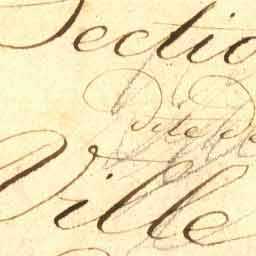 Sectio
Dite De
Ville